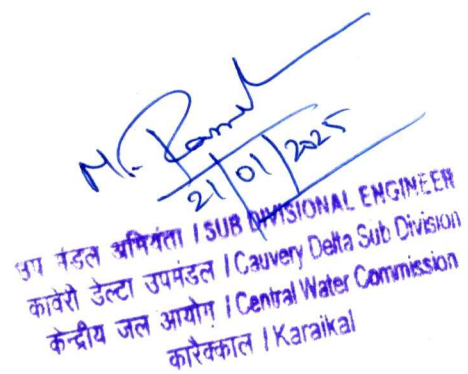 21/01/2025
उप मंडल अभियंता / SUB DIVISIONAL ENGINEER
कावेरी डेल्टा उपमंडल / Cauvery Delta Sub Division
केन्द्रीय जल आयोग / Central Water Commission
कारैक्काल / Karaikal